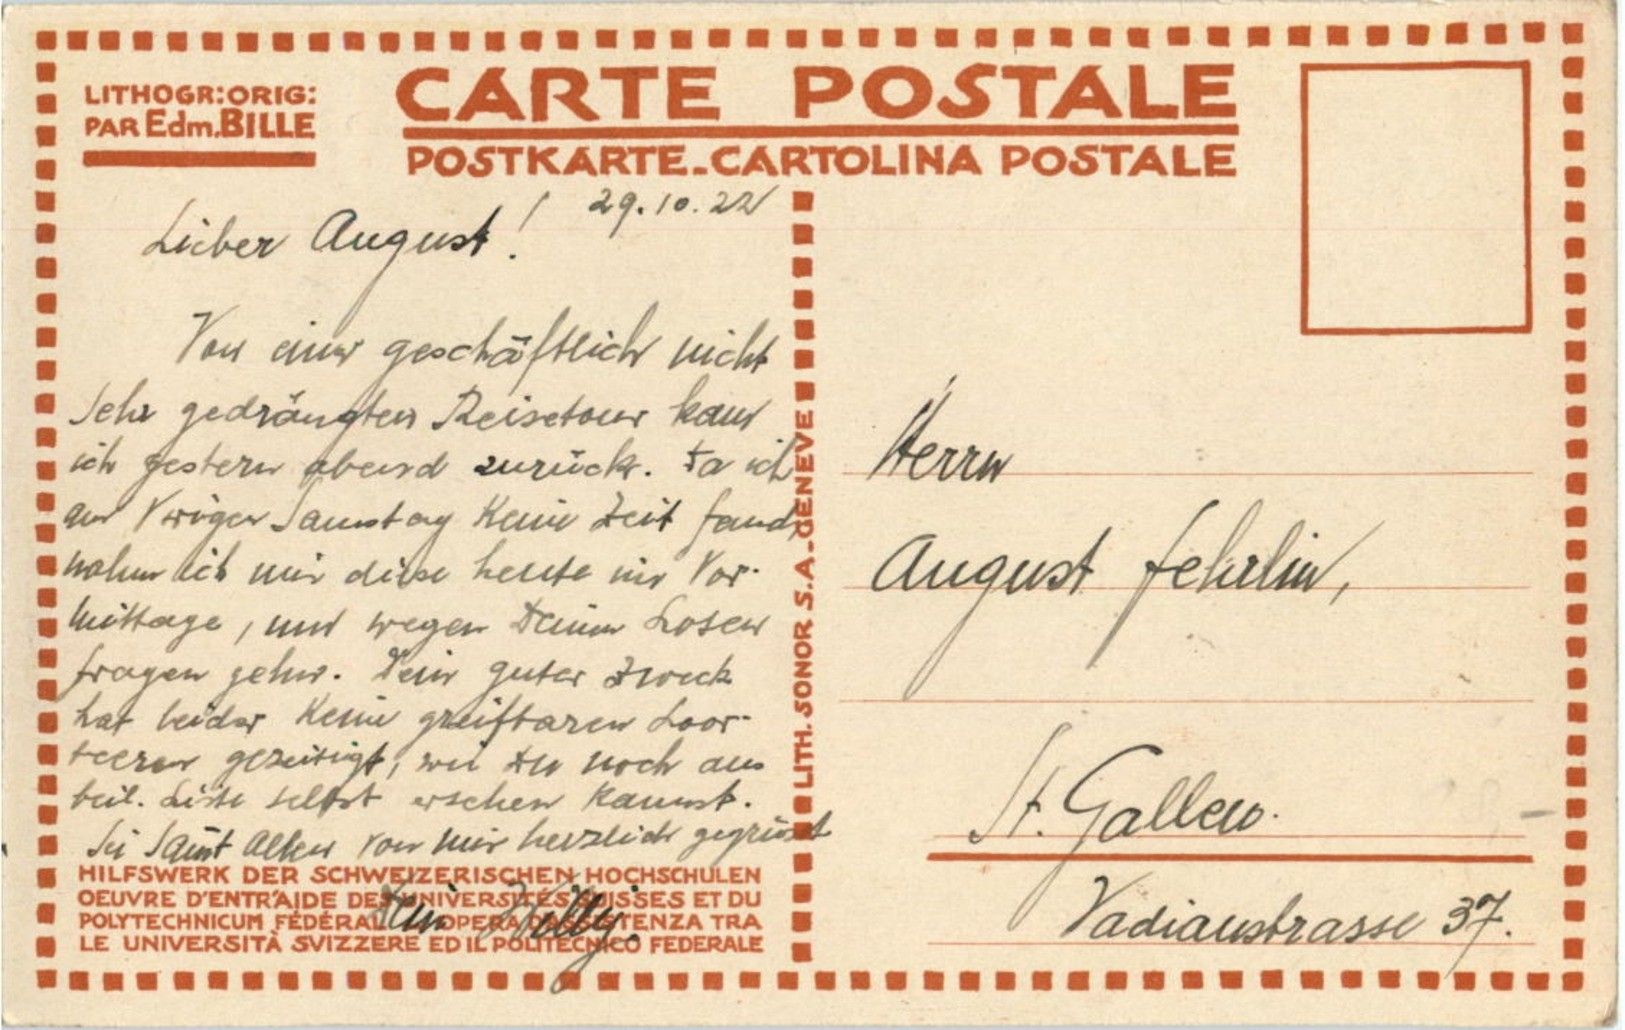 LITHOGR: ORIG:
PAR Edm. BILLE
CARTE POSTALE
POSTKARTE-CARTOLINA POSTALE
29.10.22
Lieber August!
Von einer geschäftlich nicht
sehr gedrängten Reisetour kam
ich gestern abend zurück. Da ich
am vorigen Samstag keine Zeit fand,
nahm ich mir diese heute im Vor-
mittage, um wegen Deinen Losen
fragen gehn. Dein guter Zweck
hat leider keine greifbaren Loor-
beeren gezeitigt, wie Du noch aus
beil. Liste selbst ersehen kannst.
Sei samt allen von mir herzlich gegrüsst
Dein Willy.
HILFSWERK DER SCHWEIZERISCHEN HOCHSCHULEN
OEUVRE D'ENTR'AIDE DES UNIVERSITÉS SUISSES ET DU
POLYTECHNICUM FÉDÉRAL OPERA D'ASSISTENZA TRA
LE UNIVERSITÀ SVIZZERE ED IL POLITECNICO FEDERALE
LITH. SONOR S.A. GENEVE
Herrn
August Fehrlin,
St. Gallen.
Vadianstrasse 37.